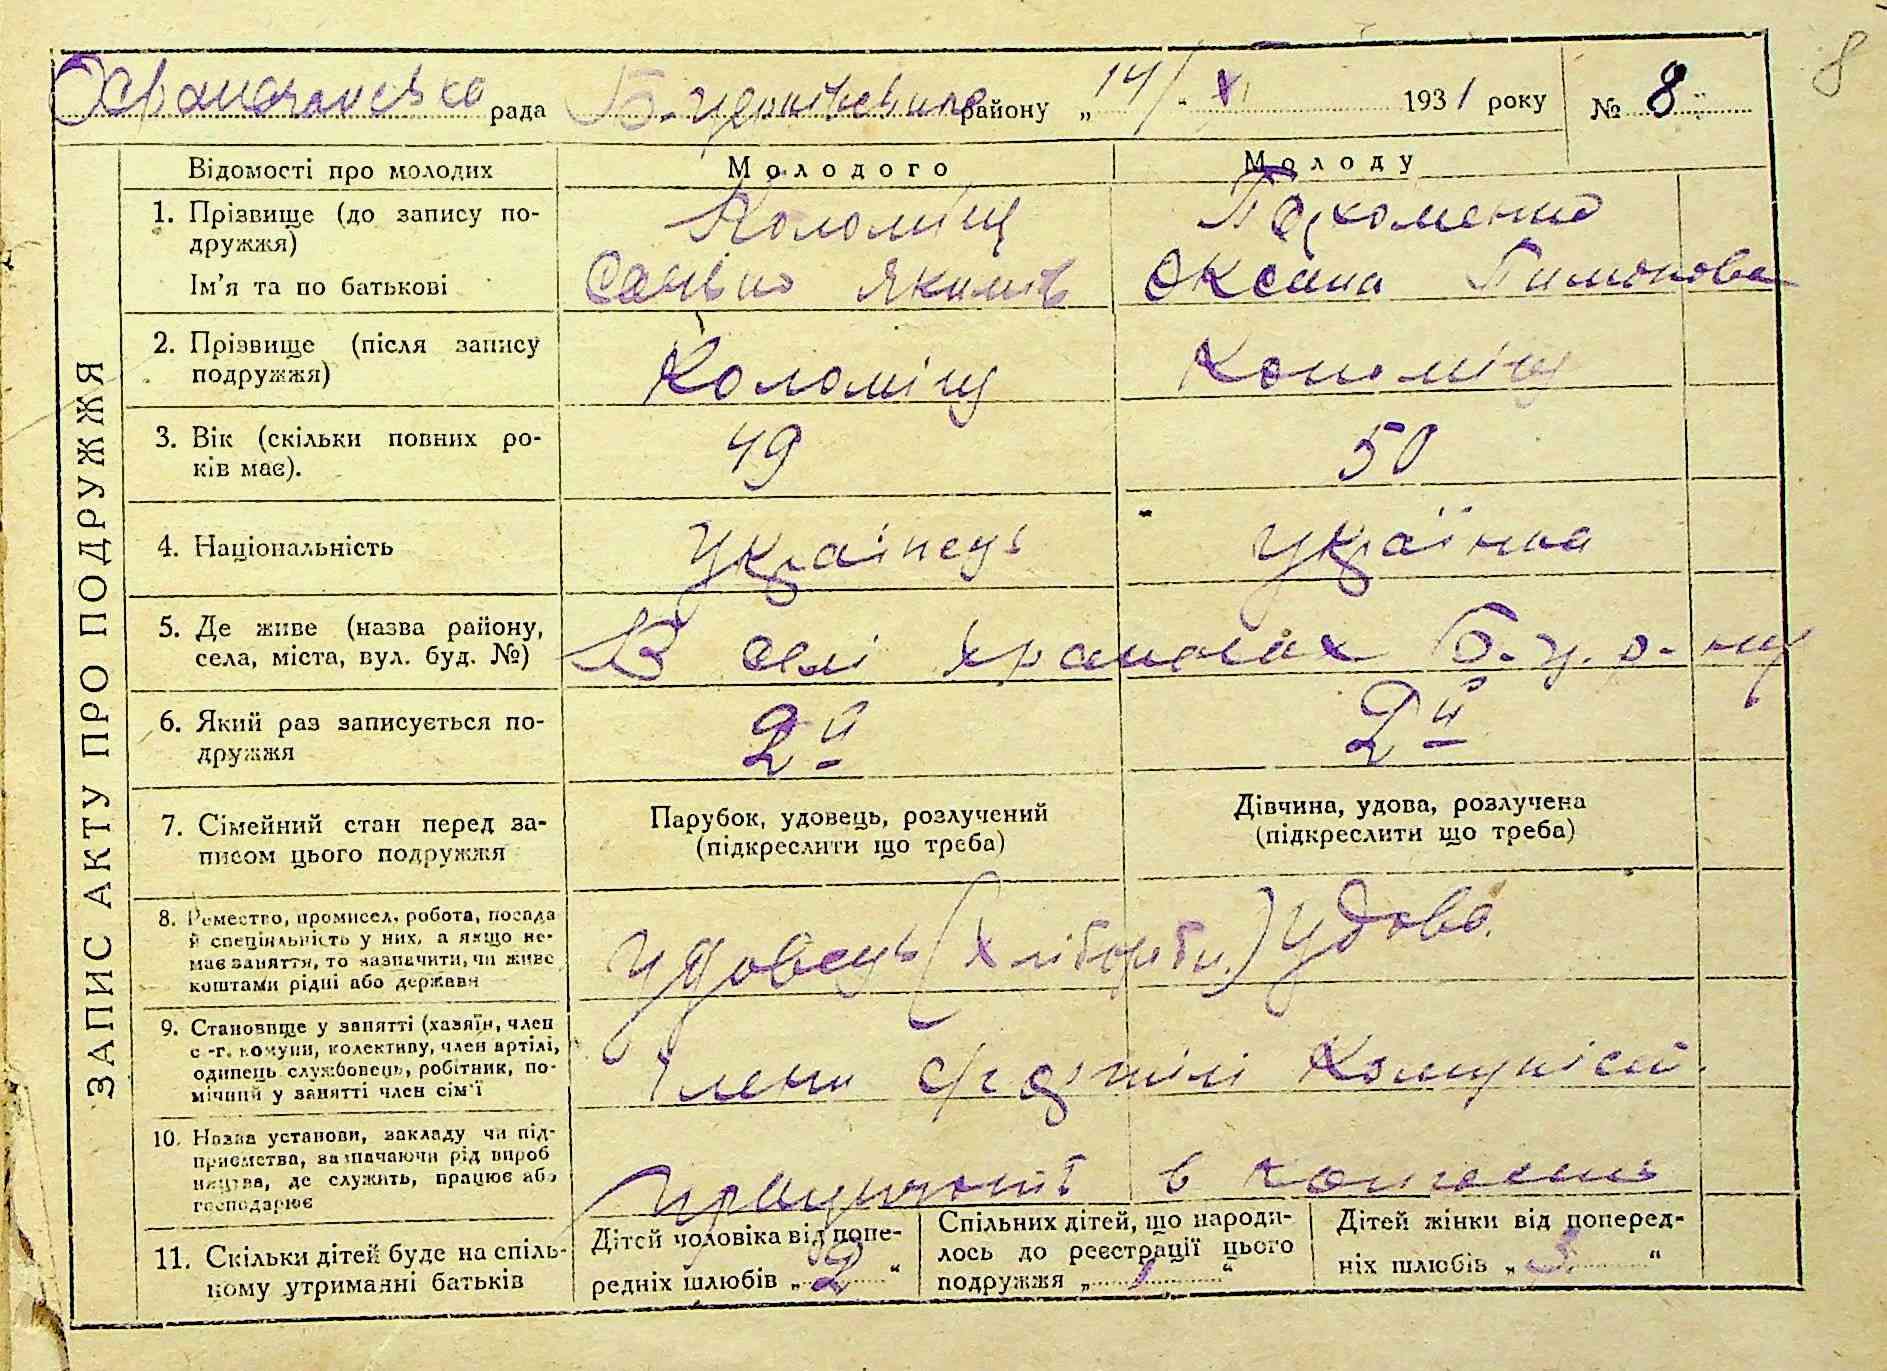 8
рада Б. району „14/XI 1931 року № 8
ЗАПИС АКТУ ПРО ПОДРУЖЖЯ
Відомості про молодих Молодого Молоду
1. Прізвище (до запису по-
дружжя)
Коломієць Пархоменко
Ім'я та по батькові Якимів Оксана Тимонова
2. Прізвище (після запису
подружжя)
Коломієць Коломієць
3. Вік (скільки повних ро-
ків має).
49 50
4. Національність Українець Українка
5. Де живе (назва району,
села, міста, вул. буд. №)
В селі Храпачах Б-Ц. р-ну
6. Який раз записується по-
дружжя
2й 2й
7. Сімейний стан перед за-
писом цього подружжя
Парубок, удовець, розлучений
(підкреслити що треба)
Дівчина, удова, розлучена
(підкреслити що треба)
8. Ремество, промисел, робота, посада
й спеціяльність у них, а якщо не-
має заняття, то зазначити, чи живе
коштами рідні або держави
Удовець (хлібороби) Удова.
9. Становище у занятті (хазяїн, член
с.-г. комуни, колективу, член артілі,
одинець службовець, робітник, по-
мічний у занятті член сім'ї
Члени с/г артілі
10. Назва установи, закладу чи під-
приємства, зазначаючи рід вироб
ництва, де служить, працює або
господарює
Працюють в
11. Скільки дітей буде на спіль-
ному утриманні батьків
Дітей чоловіка від попе-
редніх шлюбів „ 2 “
Спільних дітей, що народи-
лось до реєстрації цього
подружжя „ “
Дітей жінки від поперед-
ніх шлюбів „ “